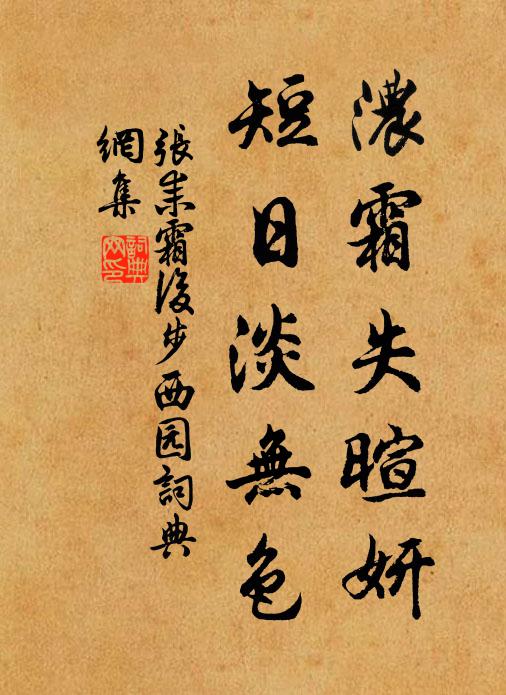 濃霜失暄妍
短日淡無色
張耒霜後步西园詞典
網集
詞典
网印